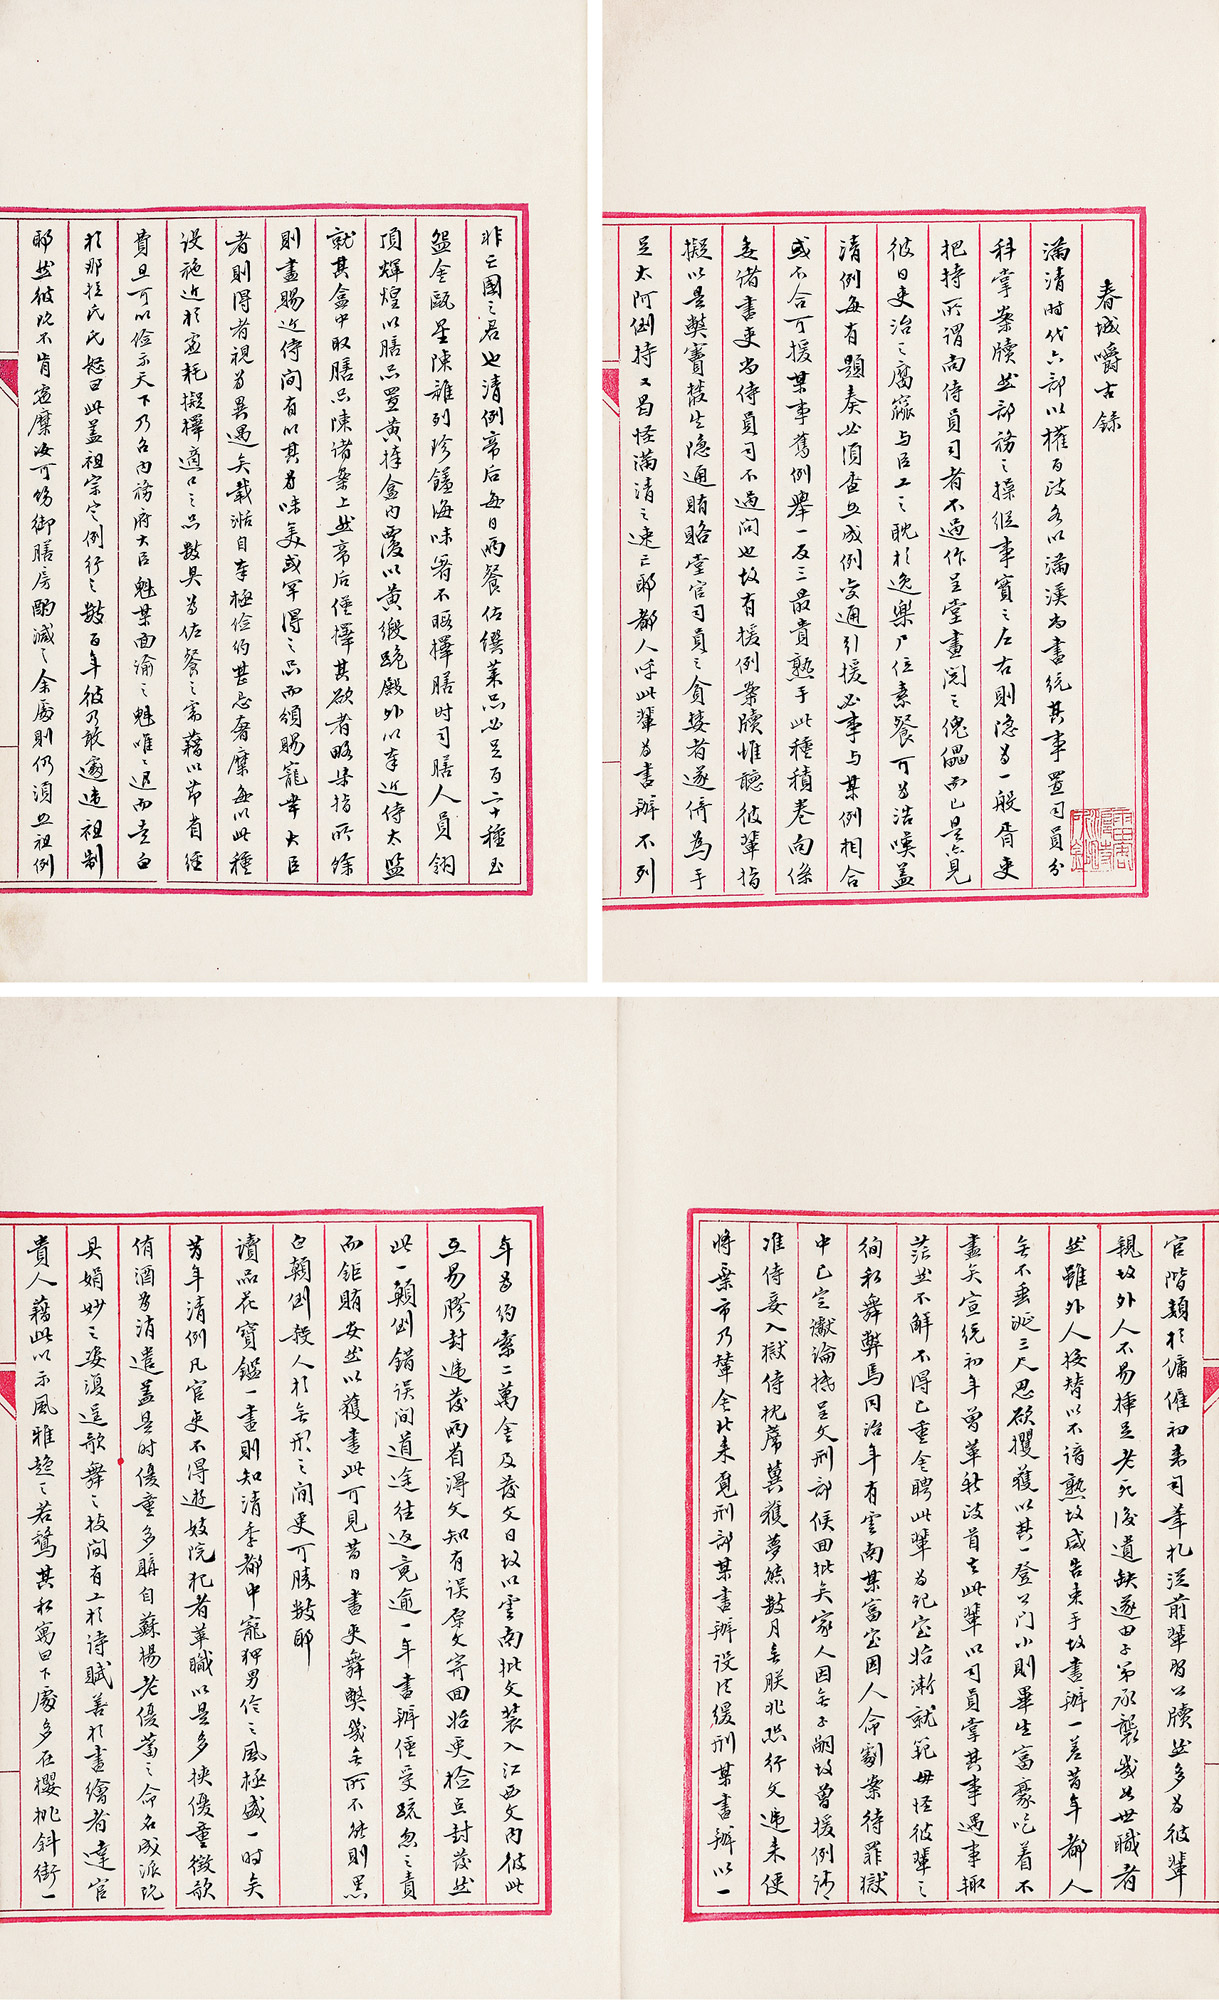 春城嚼古錄
滿清時代六部以權百政各以滿漢尚書統其事置司員分
科掌案牘然部務之操縱事實之左右則隱爲一般胥吏
把持所謂尚侍員司者不過作呈堂畫閱之傀儡而已是以見
彼日吏治之腐竄与臣工之耽於逸樂尸位素餐可爲浩嘆蓋
清例每有題奏必須查照成例变通引援必事与某例相合
或不合可援某事舊例舉一反三最貴熟手此種積卷向係
委諸書吏尚侍員司不過问也故有援例案牘惟聽彼輩指
擬以是獘竇叢生隐通賄賂堂官司員之貪婪者遂倚為手
足太阿倒持又曷怪滿清之速亡耶都人呼此輩爲書辦不列
官階類於傭僱初來司筆札從前輩習公牘然多爲彼輩
親故外人不易插足老死後遺缺遂由子弟承襲幾如世職者
然雖外人接替以不諳熟故咸告束手故書辦一差昔年都人
無不垂涎三尺思欲攫獲以其一登公门小則畢生富豪吃着不
盡矣宣統初年曾革新政首去此輩以司員掌其事遇事輒
茫然不解不得已重金聘此輩爲記室始漸就範毋怪彼輩之
徇私舞弊焉同治年有雲南某富室因人命劇案待罪獄
中已定讞論抵呈文刑部候回批矣家人因無子嗣故曾援例请
准侍妾入獄侍枕蓆冀獲夢熊數月無朕兆恐行文遞来便
將棄市乃輦金北来覓刑部某書辦设法缓刑某書辦以一
年爲約索二萬金及發文日故以雲南批文装入江西文内彼此
互易膠封遞發兩省得文知有误原文寄回始更检点封發然
此一顛倒錯误间道途往返竟逾一年書辦僅受疏忽之責
而鉅賄安然以獲盡此可見昔日書吏舞獘幾無所不能則黑
白顛倒殺人於無形之间更可勝數耶
讀品花寶鑑一書則知清季都中寵狎男伶之風極盛一时矣
昔年清例凡官吏不得遊妓院犯者革職以是多挾優童徵歌
侑酒爲消遣蓋是时優童多購自蘇楊老優蓄之命名成派既
具娟妙之姿復逞歌舞之技间有工於诗賦善於畫繪者達官
貴人藉此以示風雅趋之若鶩其私寓曰下處多在櫻桃斜街一
非亡國之君也清例帝后每日兩餐佐饌菜品必足百二十種玉
盌金甌星陳雜列珍饈海味署不暇擇膳时司膳人員翎
頂輝煌以膳品置黄捧盒内覆以黄緞跪殿外以奉近侍太監
就其盒中取膳品陳诸案上然帝后僅擇其欲者略染指所馀
則盡賜近侍间有以其爲味美或罕得之品而頒賜寵幸大臣
者則得者視爲異遇矣載湉自奉極儉约甚忌奢糜每以此種
设施近於虛耗擬擇適口之品數具爲佐餐之需藉以节省經
費且可以儉示天下乃召内務府大臣魁某面諭之魁唯唯退而走白
於那拉氏氏怒曰此蓋祖宗定例行之數百年彼乃敢遽違祖制
耶然彼既不肯虛糜汝可飭御膳房酌減之余處則仍須照祖例